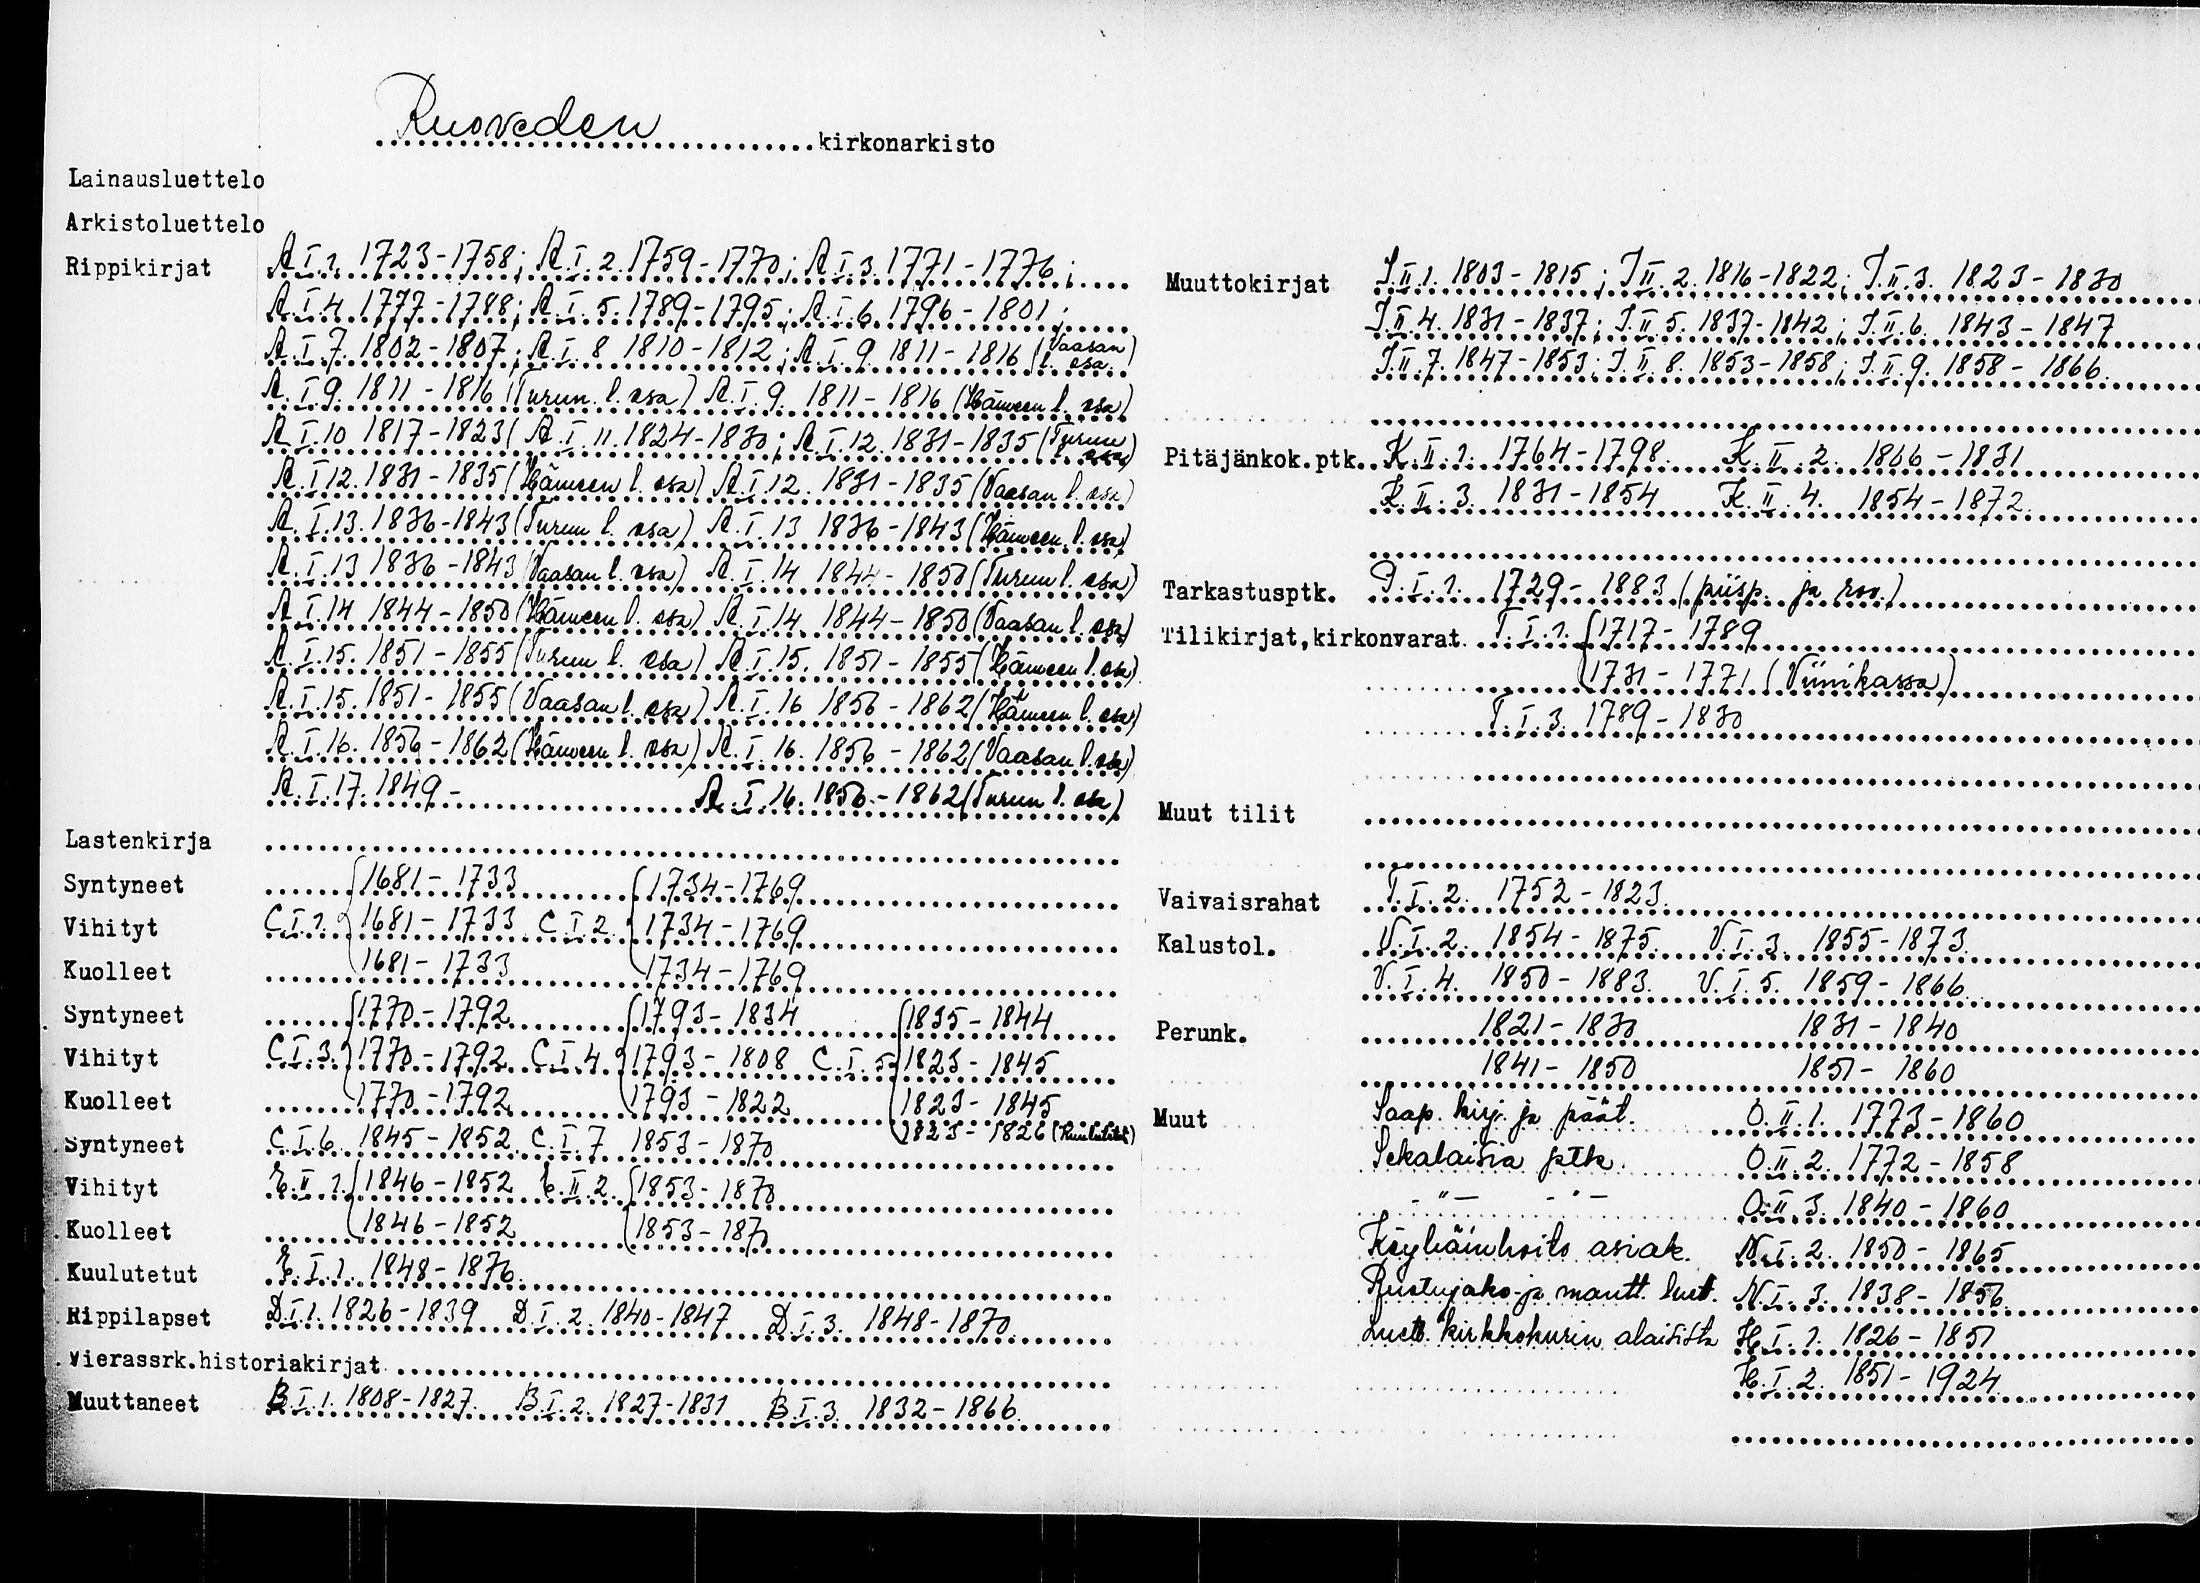 Ruoveden kirkonarkisto
Lainausluettelo
Arkistoluettelo
Rippikirjat A.I.1. 1723-1758; A.I.2. 1759-1770; A.I.3. 1771-1776;
A.I.4. 1777-1788; A.I.5. 1789-1795; A.I.6. 1796-1801;
A.I.7. 1802-1807; A.I.8 1810-1812; A.I.9. 1811-1816 (Vaasan l. osa)
A.I.9. 1811-1816 (Turun l. osa) A.I.9. 1811-1816 (Hämeen l. osa)
A.I.10 1817-1823( A.I.11. 1824-1830; A.I.12. 1831-1835 (Turun osa)
A.I.12. 1831-1835 (Hämeen l. osa) A.I.12. 1831-1835 (Vaasan l. osa)
A.I.13. 1836-1843 (Turun l. osa) A.I.13 1836-1843 (Hämeen l. osa)
A.I.13 1836-1843 (Vaasan l. osa) A.I.14 1844-1850 (Turun l. osa)
A.I.14 1844-1850 (Hämeen l. osa) A.I.14 1844-1850 (Vaasan l. osa)
A.I.15. 1851-1855 (Turun l. osa) A.I.15. 1851-1855 (Hämeen l. osa)
A.I.15. 1851-1855 (Vaasan l. osa) A.I.16 1856-1862 (Hämeen l. osa)
A.I.16. 1856-1862 (Hämeen l. osa) A.I.16. 1856-1862 (Vaasan l. osa)
A.I.17. 1849- A.I.16. 1856-1862 (Turun l. osa)
Lastenkirja
Syntyneet 1681-1733 1734-1769
Vihityt C.I.1. 1681-1733 C.I.2. 1734-1769
Kuolleet 1681-1733 1734-1769
Syntyneet 1770-1792 1793-1834 1835-1844
Vihityt C.I.3. 1770-1792 C.I.4. 1793-1808 C.I.5 1823-1845
Kuolleet 1770-1792 1793-1822 1823-1845
1823-1826 (Kuulutetut)
Syntyneet C.I.6. 1845-1852. C.I.7 1853-1870
Vihityt E.II.1. 1846-1852 E.II.2. 1853-1870
Kuolleet 1846-1852 1853-1870
Kuulutetut E.I.1. 1848-1876.
Rippilapset D.I.1. 1826-1839 D.I.2. 1840-1847 D.I.3. 1848-1870.
Vierassrk.historiakirjat
Muuttaneet B.I.1. 1808-1827. B.I.2. 1827-1831 B.I.3. 1832-1866.
Muuttokirjat J.II.1. 1803-1815; J.II.2. 1816-1822; J.II.3. 1823-1830
J.II.4. 1831-1837; J.II.5. 1837-1842; J.II.6. 1843-1847
J.II.7. 1847-1853; J.II.8. 1853-1858; J.II.9. 1858-1866.
Pitäjänkok.ptk. K.II.1. 1764-1798. K.II.2. 1866-1831
K.II.3. 1831-1854 K.II.4. 1854-1872.
Tarkastusptk. P.I.1. 1729-1883 (piisp. ja rov.)
Tilikirjat,kirkonvarat T.I.1. 1717-1789
1731-1771 (Viinikassa)
T.I.3. 1789-1830
Muut tilit
Vaivaisrahat T.I.2. 1752-1823.
Kalustol. V.I.2. 1854-1875. V.I.3. 1855-1873.
V.I.4. 1850-1883. V.I.5. 1859-1866.
Perunk. 1821-1830 1831-1840
1841-1850 1851-1860
Muut Saap. kirj. ja päät. O.II.1. 1773-1860
Sekalaisia ptk. O.II.2. 1772-1858
-"- -"- O.II.3. 1840-1860
Köyhäinhoito asiak. N.I.2. 1850-1865
Ruotujako- ja mantt. luet. N.I.3. 1838-1856.
Luett. kirkkokurin alaisista H.I.1. 1826-1851
H.I.2. 1851-1924.